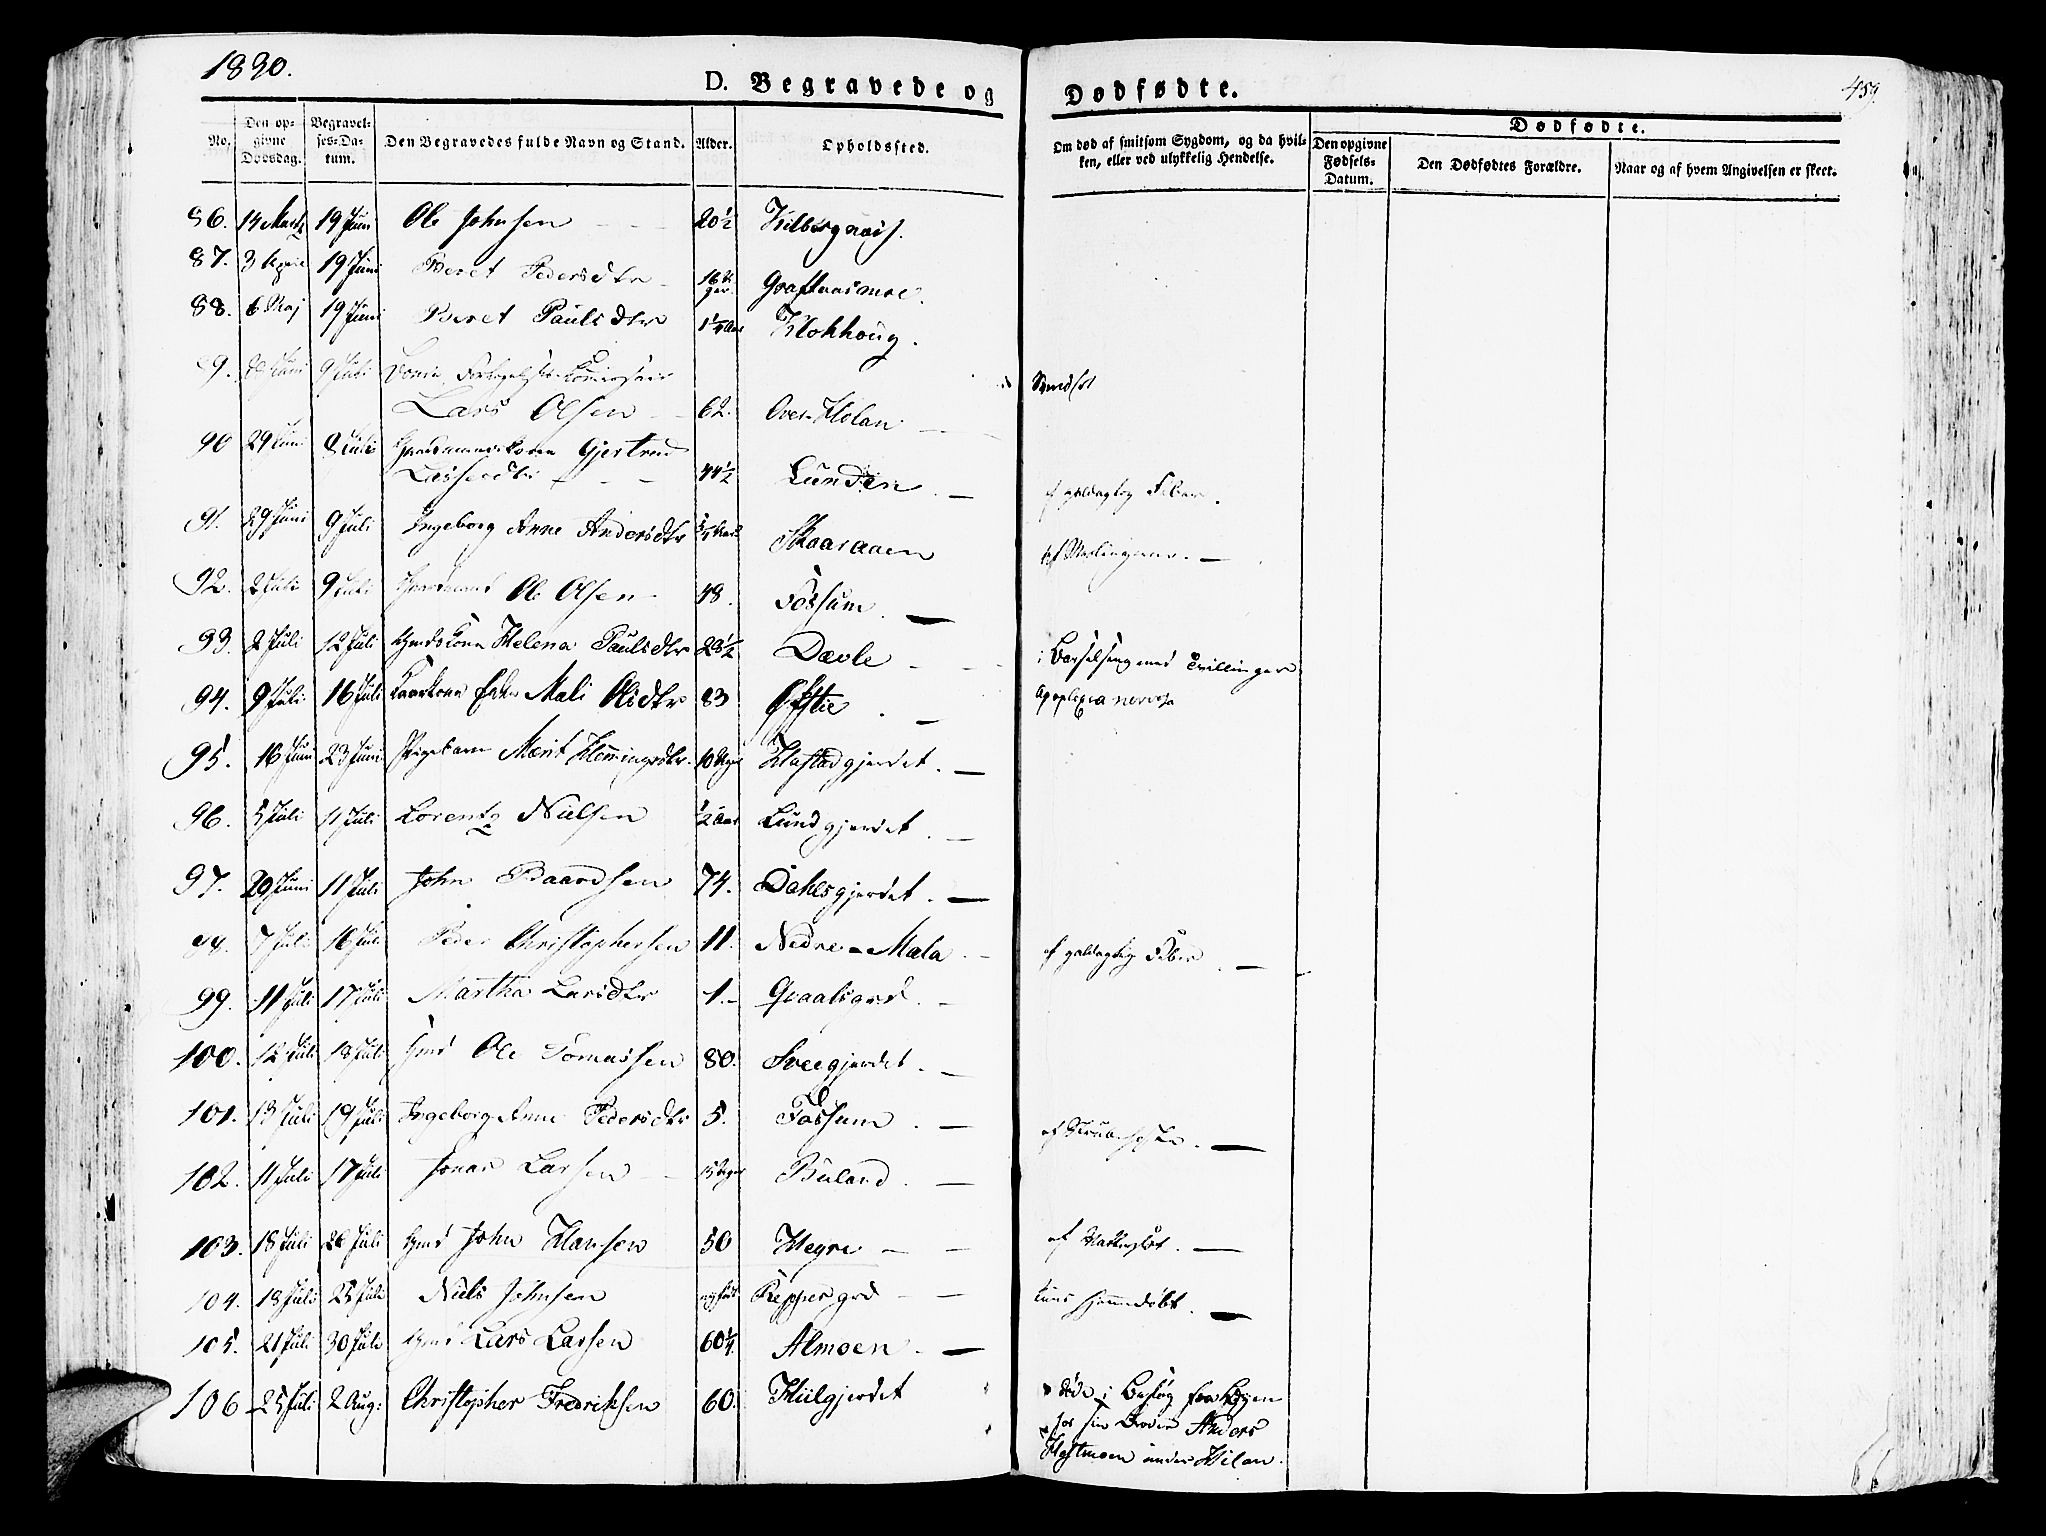 1830.
D. Begravede og Dødfødte.
459
No.
Den opgivne Dødsdag.
Begravelses-Datum.
Den Begravedes fulde Navn og Stand.
Alder.
Opholdssted.
Om død af smitsom Sygdom, og da hvilken, eller ved ulykkelig Hendelse.
Dødfødte.
Den opgivne Fødsels-Datum.
Den Dødfødtes Forældre.
Naar og af hvem Angivelsen er skeet.
86. 14 Marts 19 Juni Ole Johnsen 20 1/2
87. 3 April 19 Juni Beret Pedersdtr 16 Graftaasmoe.
88. 6 Maj 19 Juni Beret Paulsdtr 1 1/4 Aar Klokhoug.
9. Juni 9 Juli
Lars Olsen 62. Over-Holan
90 29 Juni 9 Juli Gjertrud
Lassesdtr 44 1/2 Lunden af galdagtig Feber.
91. 29 Juni 9 Juli Ingeborg Anne Andersdtr Skaaraaen af Meslingerne.
92. 2 Juli 9 Juli Gaardmand Ole Olsen 48. Fossum.
93. 2 Juli 12 Juli Gmdskone Helena Paulsdtr 28 1/2 Dævle i Barselseng med Tvillinger
94. 9 Juli 16 Juli Mali Olsdtr 83 Øfstie. Apoplexia nervosa
95. 16 Juni 23 Juni Pigebarn Merit Hemmingsdtr. 10 Uger Hastadgjerdet.
96. 5 Juli 11 Juli Lorentz Nielsen 1/2 Aar Lundgjerdet.
97. 29 Juni 11 Juli John Baardsen 74. Dahlsgjerdet.
98. 7 Juli 16 Juli Peder Christophersen 11. Nedre-Mæla af galdagtig Feber
99. 11 Juli 17 Juli Martha Larsdtr 1. Qvaalsgrd.
100. 12 Juli 18 Juli Gmd Ole Tomassen 80. Sveegjerdet.
101. 13 Juli 19 Juli Ingeborg Anne Pedersdtr 5. Fossum af Strubehoste.
102. 11 Juli 17 Juli Jonas Larsen 15 Uger Buland.
103. 18 Juli 26 Juli Gmd John Hansen 50 Hegre
104. 18 Juli 25 Juli Niels Johnsen nyfødt Reppesgrd hjemmedøbt.
105. 21 Juli 30 Juli Gmd Lars Larsen 60 1/4. Almoen
106 25 Juli 2 Aug: Christopher Fredriksen 60. Hiilgjerdet døde i Besøg fra Byen
hos sin Broder Anders
Hestmoen under Hilan.